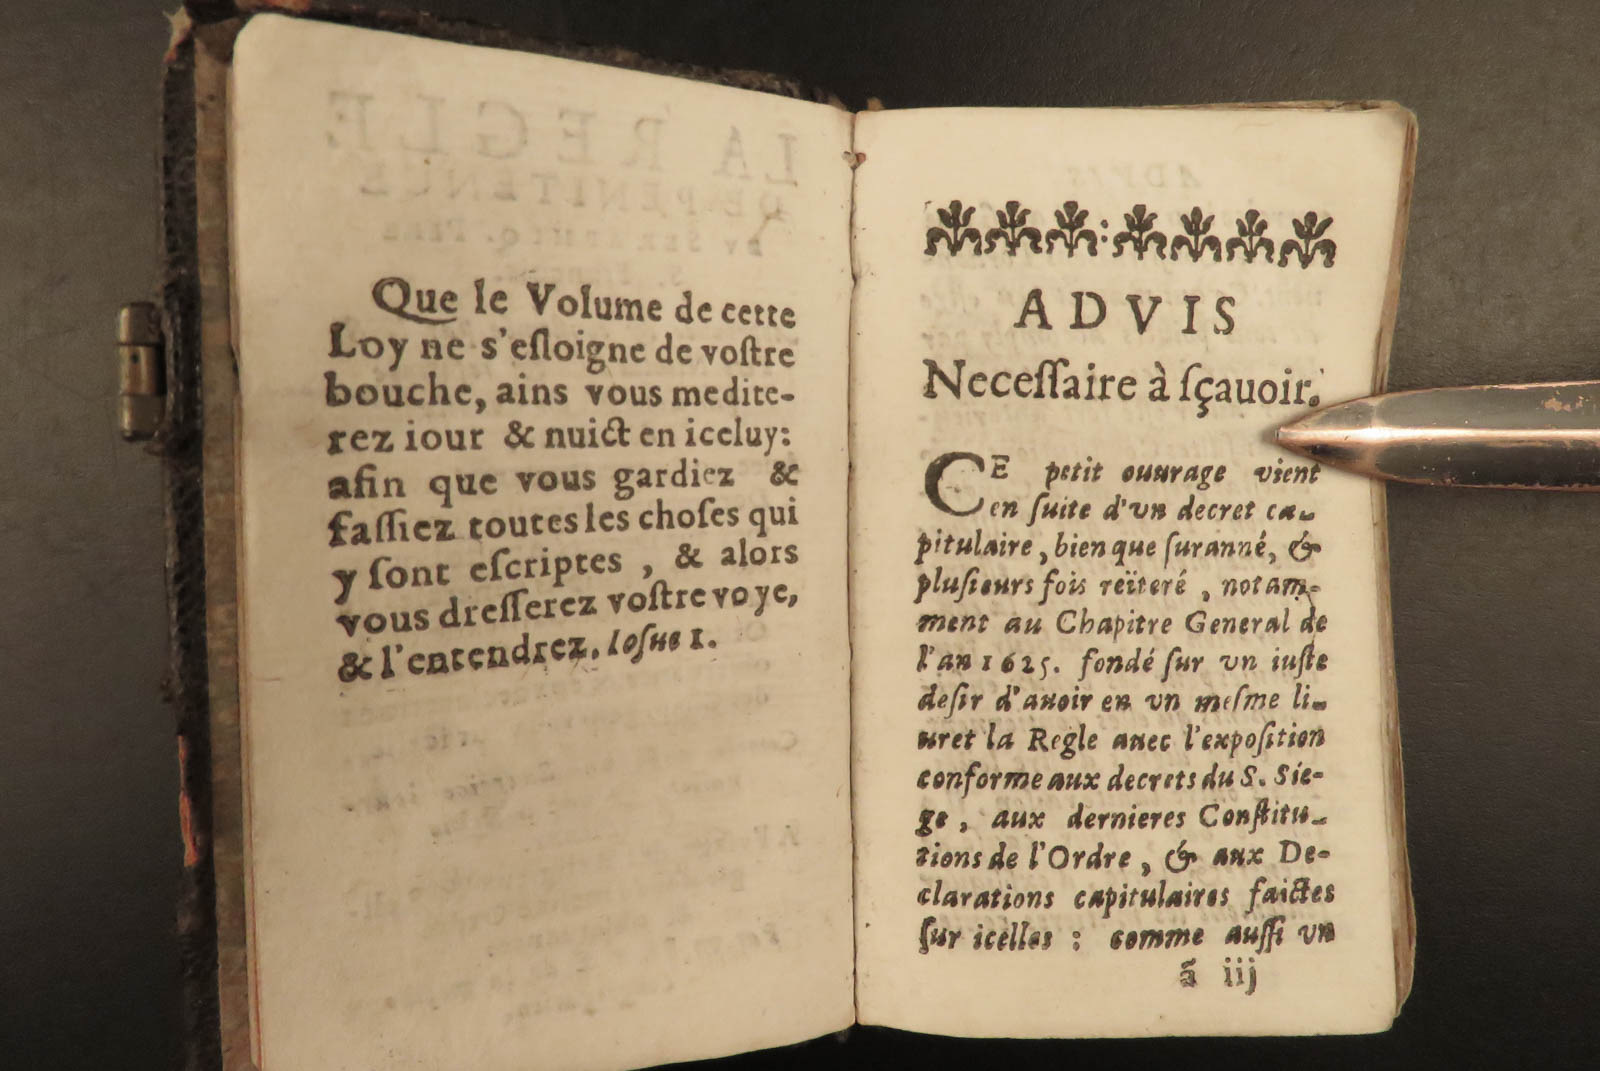 Que le Volume de cette
Loy ne s'eſloigne de voſtre
bouche, ains vous medite-
rez iour & nuict en iceluy:
afin que vous gardiez &
faſſiez toutes les choſes qui
y ſont eſcriptes, & alors
vous dreſſerez voſtre voye,
& l'entendrez. Ioſue 1.
ADVIS
Neceſſaire à ſçauoir.
CE petit ouurage vient
en ſuite d'vn decret ca-
pitulaire, bien que ſuranné, &
pluſieurs fois reïteré, notam-
ment au Chapitre General de
l'an 1625. fondé ſur vn iuſte
deſir d'auoir en vn meſme li-
uret la Regle auec l'expoſition
conforme aux decrets du S. Sie-
ge, aux dernieres Conſtitu-
tions de l'Ordre, & aux De-
clarations capitulaires faictes
ſur icelles : comme auſſi vn
ã iij